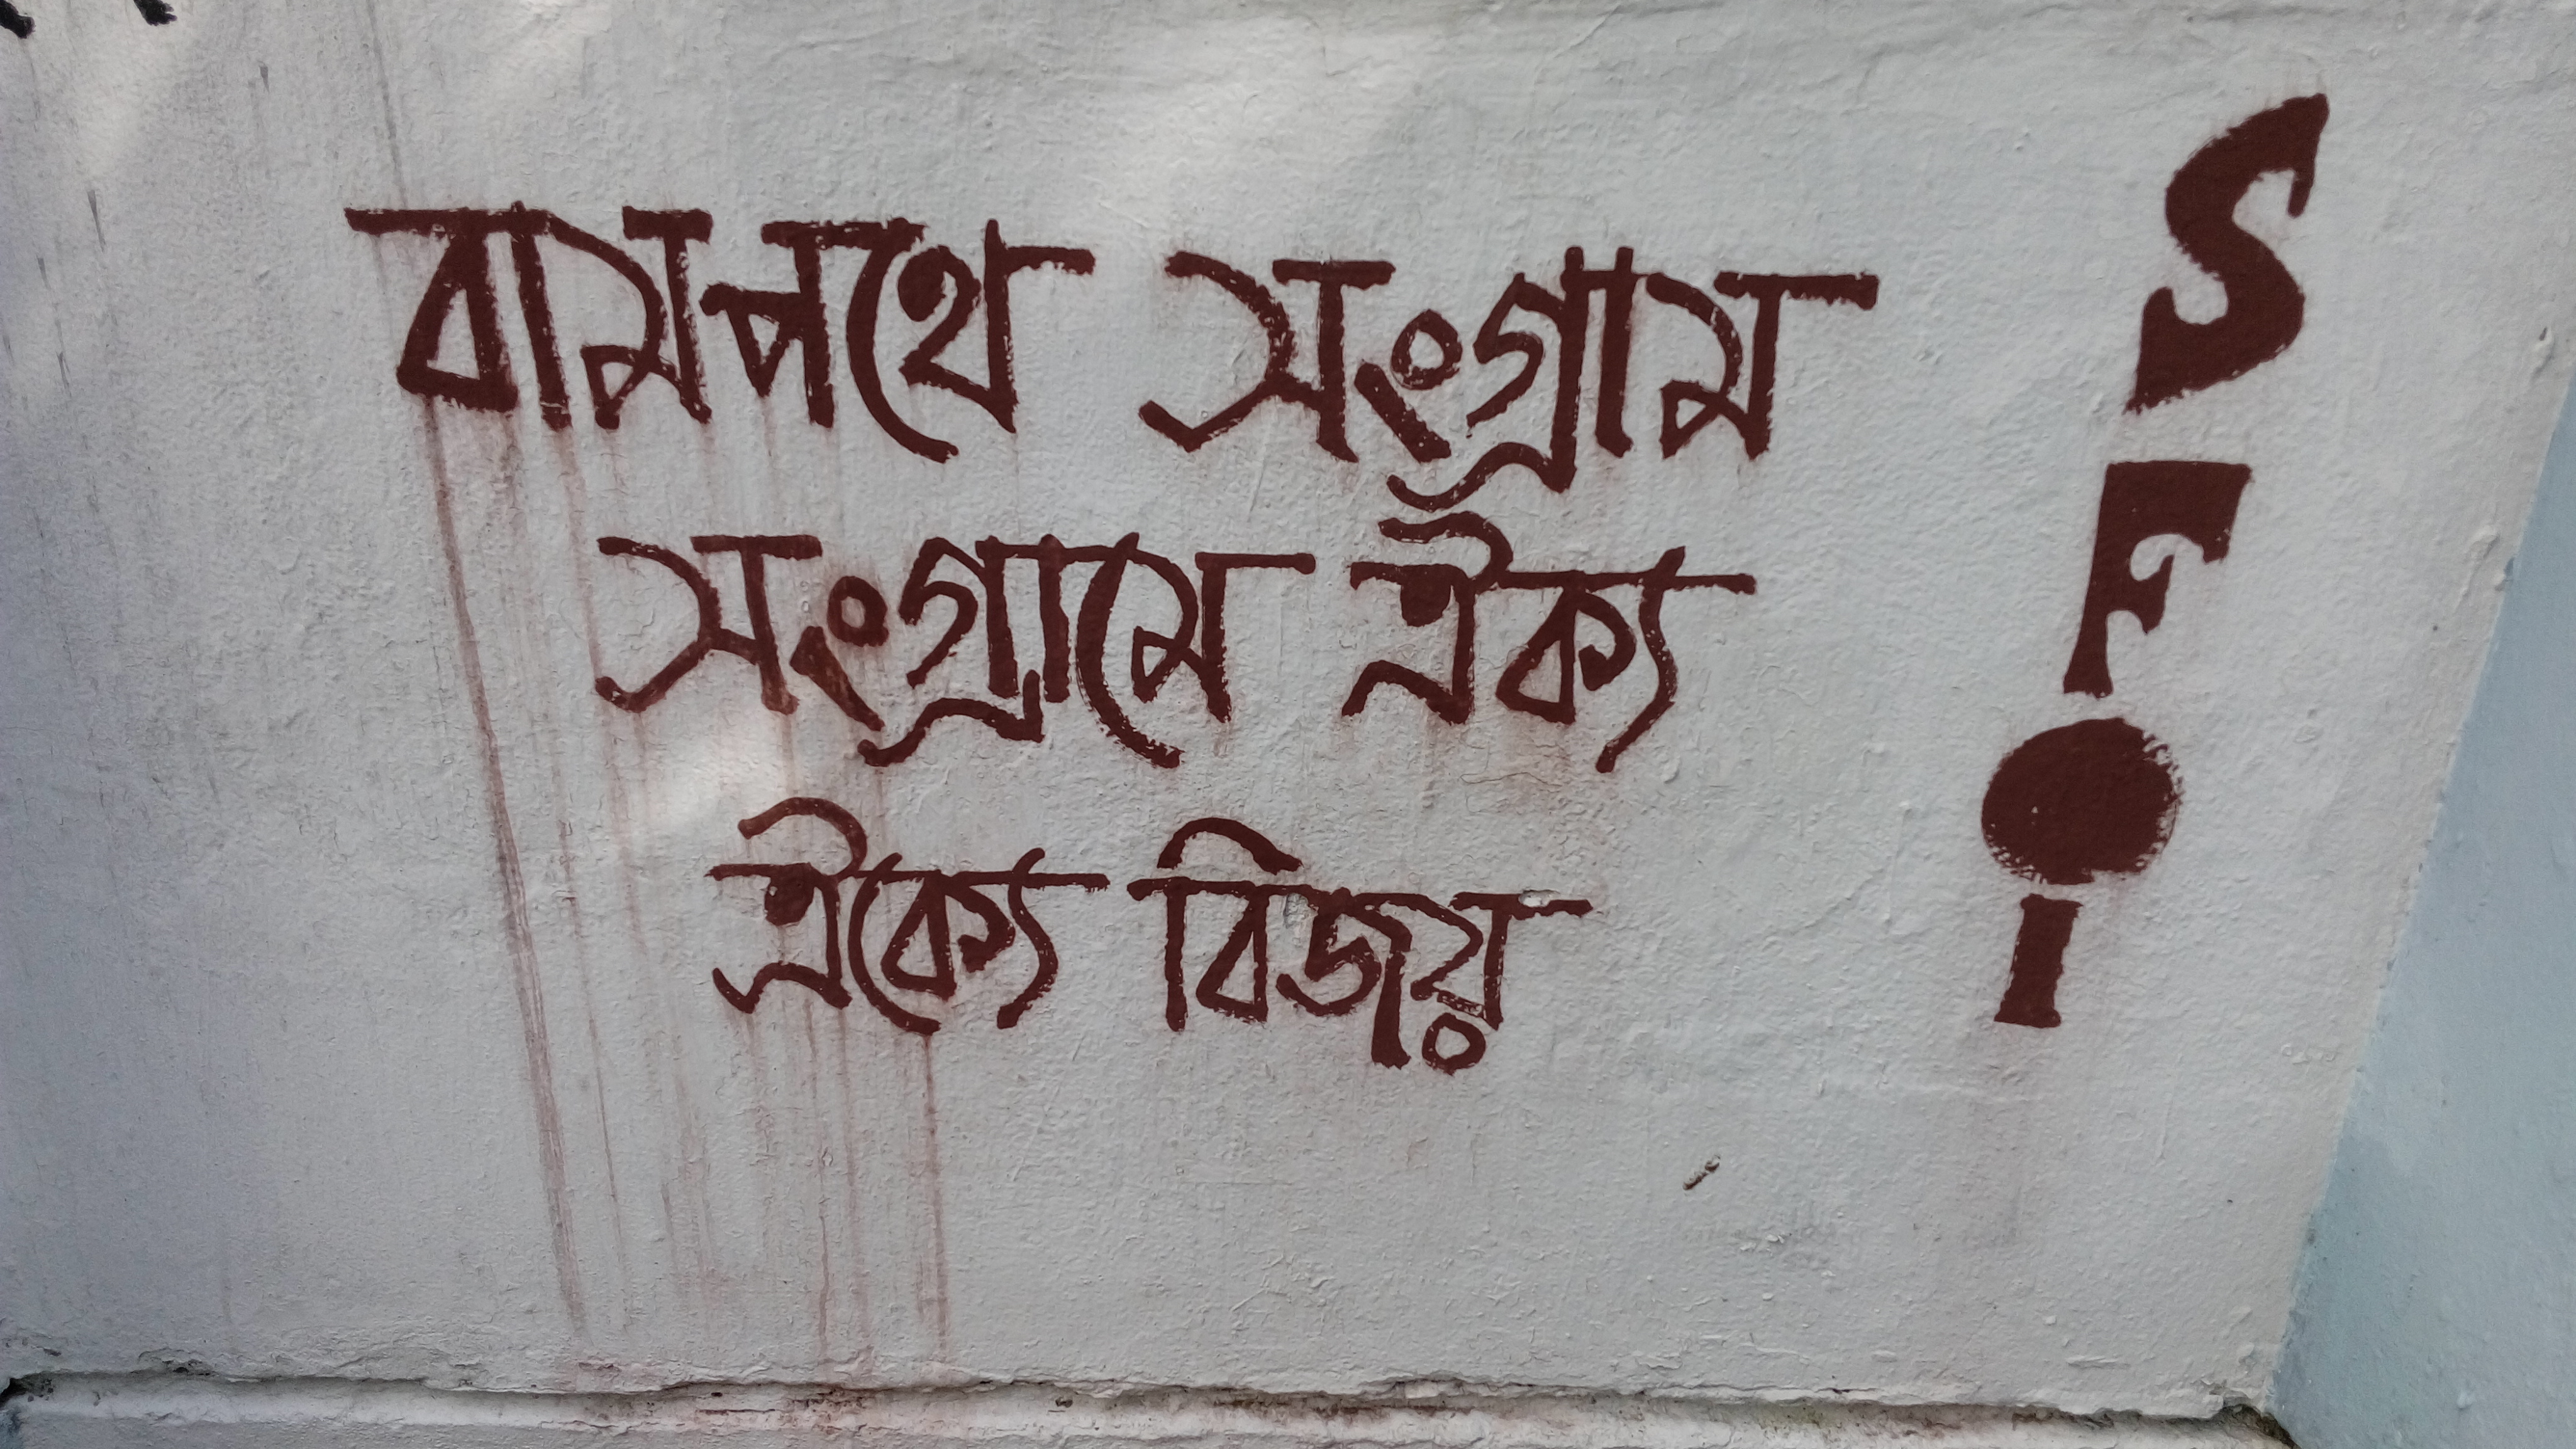 বামপথে সংগ্রাম
সংগ্রামে ঐক্য
ঐক্যে বিজয়
SFI